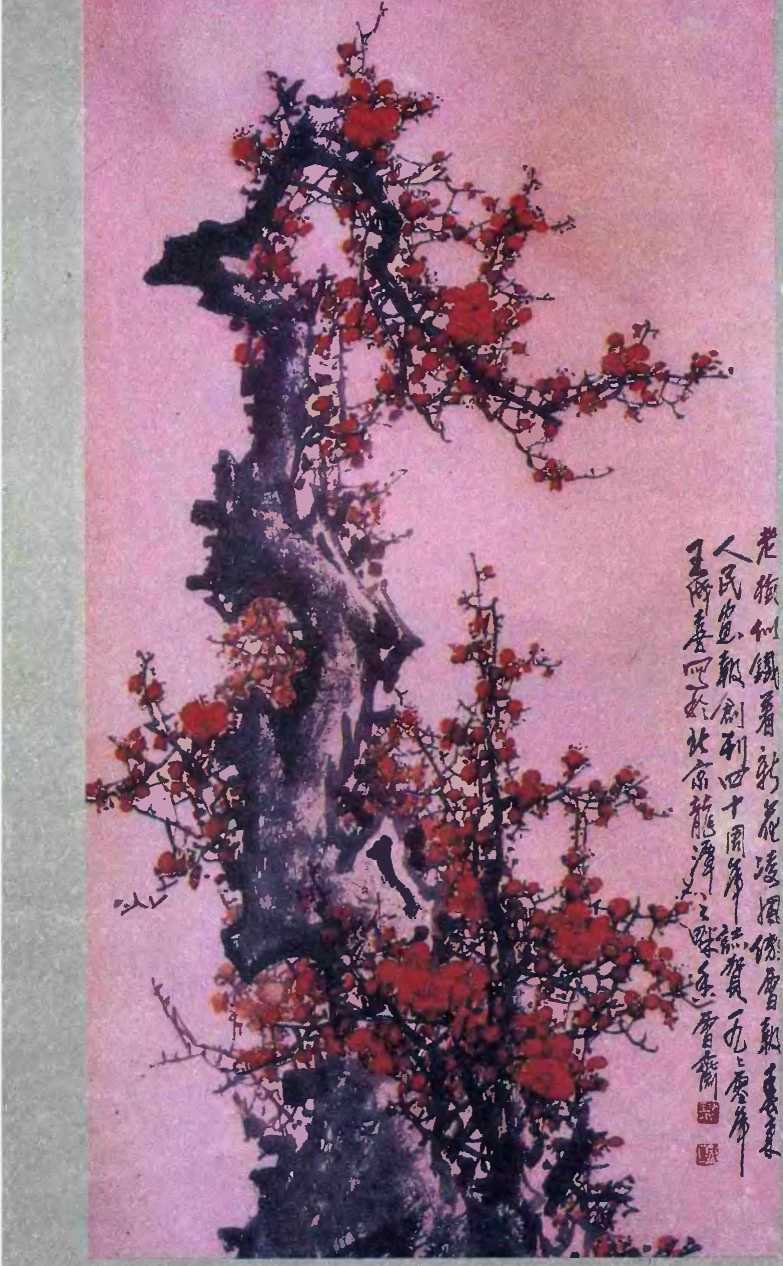 老梅似鐵着新花凌風傲雪報春來
人民畫報創刊四十周年誌賀一九九零年
王成喜寫於北京龍潭之畔香雪齋